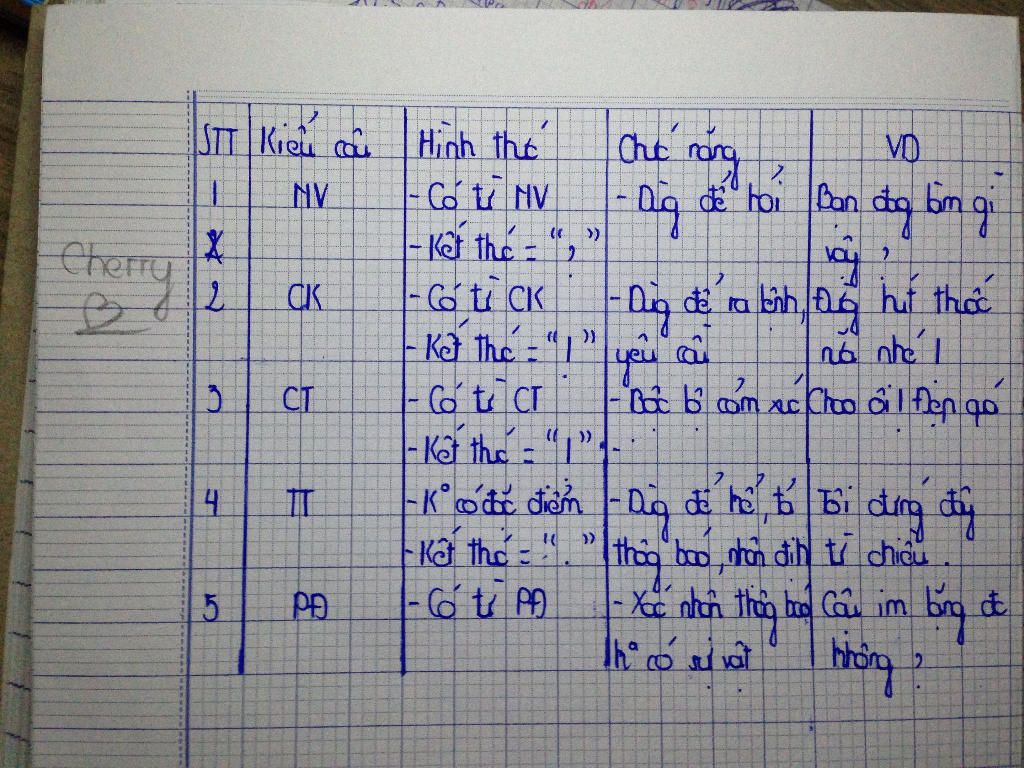 STT Kiểu câu Hình thức Chức năng VD
1 NV - Có từ NV - Dùg để hỏi Bạn đag làm gì
- Kết thúc = "?" vậy ?
Cherry
2 CK - Có từ CK - Dùg để ra lệnh, Đừg hút thuốc
- Kết thúc = "!" yêu cầu nữa nhé !
3 CT - Có từ CT - Bộc lộ cảm xúc Chao ôi ! Đẹp quá
- Kết thúc = "!" -
4 TT - K° có đặc điểm - Dùg để kể, tả Tôi đứng đây
- Kết thúc = "." thôg báo, nhận địh từ chiều .
5 PĐ - Có từ PĐ - Xác nhận thôg báo Cậu im lặng đc
k° có sự vật không ?